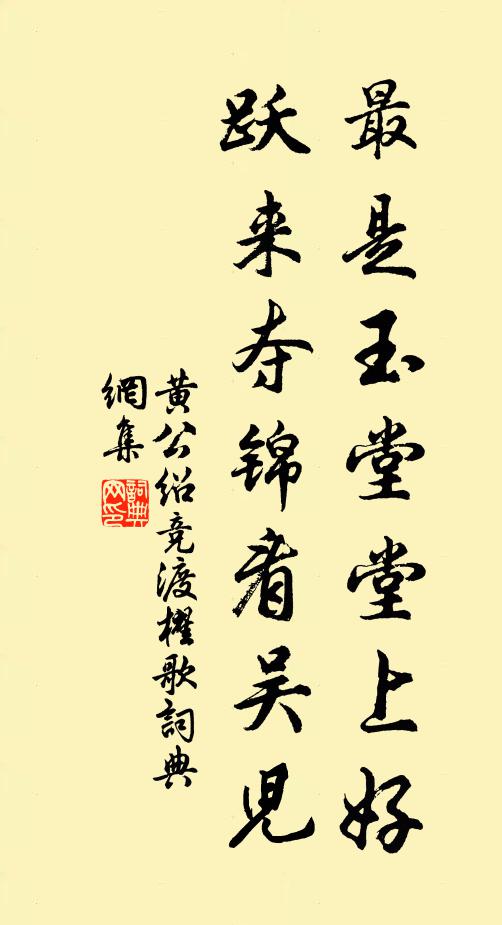 最是玉堂堂上好
跃来夺锦看吴児
黄公绍竞渡櫂歌詞典
網集
詞典
网印